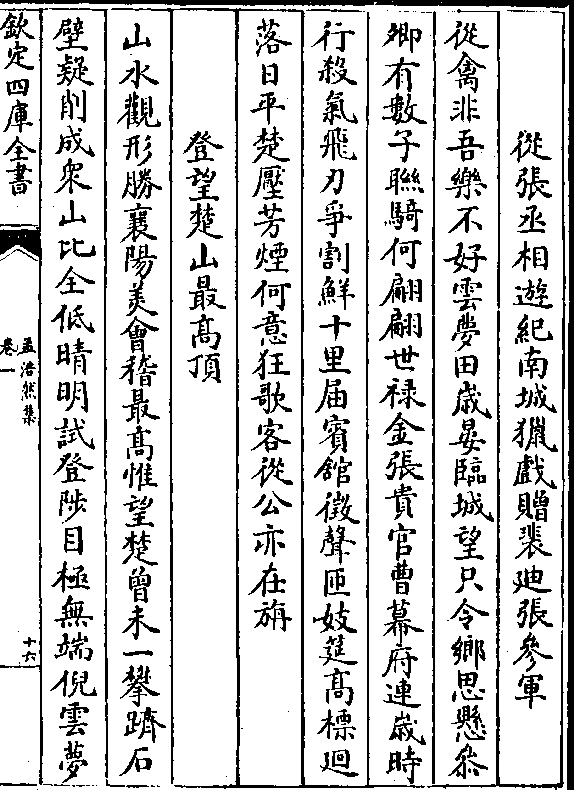 從張丞相遊紀南城獵戲贈裴廸張參軍
從禽非吾樂不好雲夢田歲晏臨城望只令鄉思懸參
卿有數子聯騎何翩翩世禄金張貴官曹幕府連歲時
行殺氣飛刃爭割鮮十里届賓館徵聲匝妓筵髙標迴
落日平楚壓芳煙何意狂歌客從公亦在旃
登望楚山最髙頂
山水觀形勝襄陽美會稽最髙惟望楚曾未一攀躋石
壁疑削成衆山比全低晴明試登陟目極無端倪雲夢
欽定四庫全書
孟浩然集
卷一
十六